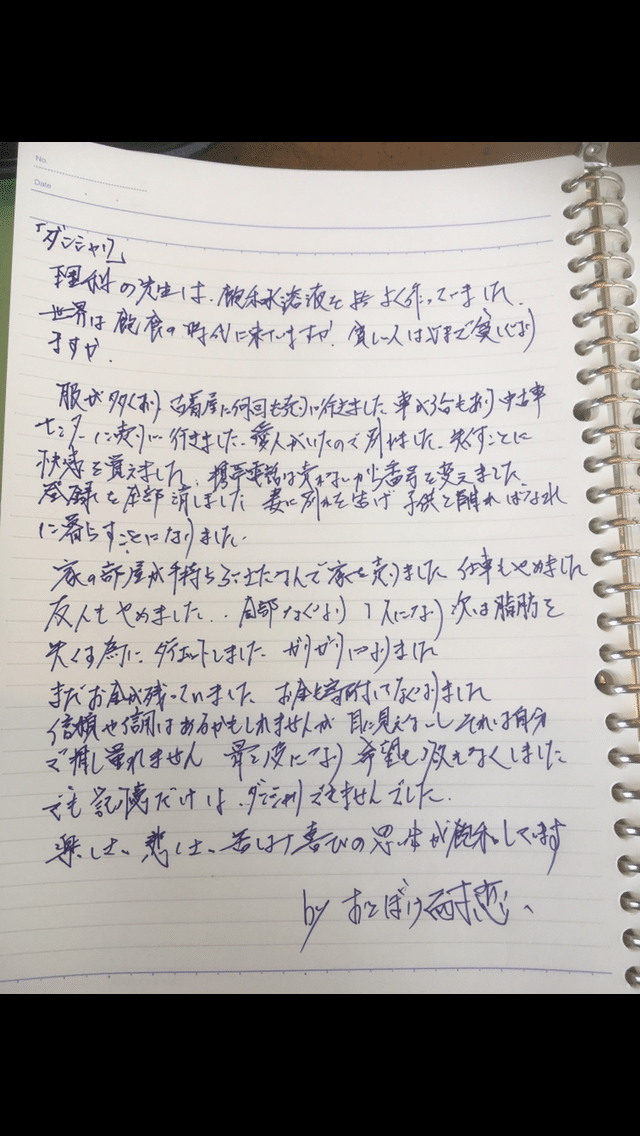 No.
Date
「ダンシャリ」
理科の先生は、飽和水溶液を よく作っていました、
世界は飽食の時代に来ていますが、貧しい人はどこまで貧しくなり
ますか、
服が多くあり 古着屋に何回も売りに行きました、車が3台もあり 中古車
センターに売りに行きました、愛人がいたので別れました、失すことに
快感を覚えました、携帯電話は売れないから番号を変えました、
登録を全部消しました 妻に別れを告げ 子供と離ればなれ
に暮らすことになりました、
家の部屋が手持ちぶさたなんで家を売りました 仕事もやめました
友人もやめました、、全部なくなり 1人になり 次は脂肪を
失くす為に ダイエットしました ガリガリになりました
まだお金が残っていました お金も寄附してなくなりました
信頼や信用はあるかもしれませんが 目に見えないし それは自分
で推し量れません 骨と皮になり 希望も 涙もなくしました
でも 記憶だけは、ダンシャリできませんでした、
楽しさ、悲しさ、苦しさ、喜びの思い出が飽和しています
by おとぼけ耐恋、